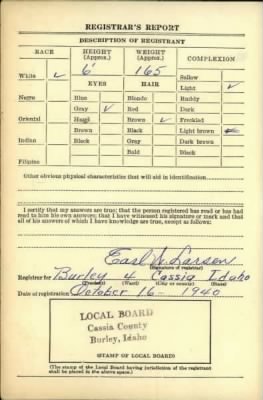 REGISTRAR'S REPORT
DESCRIPTION OF REGISTRANT
RACE HEIGHT (Approx.) WEIGHT (Approx.) COMPLEXION
White ✓ 6' 165 Sallow
EYES HAIR Light ✓
Negro Blue Blonde Ruddy
Gray ✓ Red Dark
Oriental Hazel Brown ✓ Freckled
Brown Black Light brown
Indian Black Gray Dark brown
Bald Black
Filipino
Other obvious physical characteristics that will aid in identification
I certify that my answers are true; that the person registered has read or has had
read to him his own answers; that I have witnessed his signature or mark and that
all of his answers of which I have knowledge are true, except as follows:
Earl W. Larsen
(Signature of registrar)
Registrar for Burley 4 Cassia Idaho
(Precinct) (Ward) (City or county) (State)
Date of registration October 16 - 1940
LOCAL BOARD
Cassia County
Burley, Idaho
(STAMP OF LOCAL BOARD)
(The stamp of the Local Board having jurisdiction of the registrant
shall be placed in the above space.)